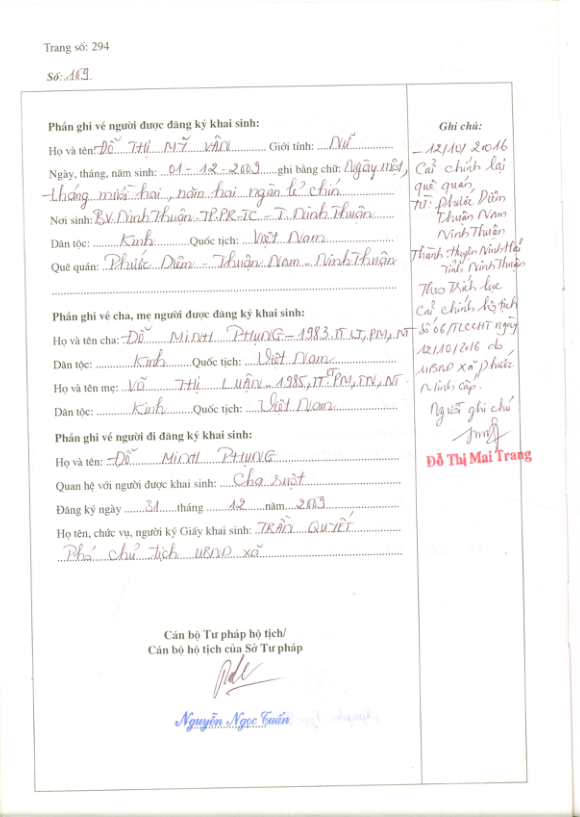 Trang số: 294
Số: 169
Phần ghi về người được đăng ký khai sinh:
Họ và tên: ĐỖ THỊ MỸ VÂN Giới tính: Nữ
Ngày, tháng, năm sinh: 01 - 12 - 2009 ghi bằng chữ: Ngày một,
tháng mười hai, năm hai ngàn lẻ chín
Nơi sinh: BV. Ninh Thuận. TP. PR-TC - T. Ninh Thuận
Dân tộc: Kinh Quốc tịch: Việt Nam
Quê quán: Phước Diêm - Thuận Nam - Ninh Thuận
Phần ghi về cha, mẹ người được đăng ký khai sinh:
Họ và tên cha: ĐỖ MINH PHỤNG - 1983. TT LT, PM, NT
Dân tộc: Kinh Quốc tịch: Việt Nam
Họ và tên mẹ: VÕ THỊ LUÂN - 1985, TT. PM, TN, NT
Dân tộc: Kinh Quốc tịch: Việt Nam
Phần ghi về người đi đăng ký khai sinh:
Họ và tên: ĐỖ MINH PHỤNG
Quan hệ với người được khai sinh: Cha ruột
Đăng ký ngày 31 tháng 12 năm 2009
Họ tên, chức vụ, người ký Giấy khai sinh: TRẦN QUYẾT
Phó chủ tịch UBND xã
Cán bộ Tư pháp hộ tịch/
Cán bộ hộ tịch của Sở Tư pháp
Nguyễn Ngọc Tuấn
Ghi chú:
- 12/10/20016
Cải chính lại
quê quán,
từ: Phước Diêm
Thuận Nam
Ninh Thuận
Thành: Huyện Ninh Hải
Tỉnh Ninh Thuận
Theo Trích lục
Cải chính hộ tịch
Số 06/TLCCHT ngày
12/10/2016 do
UBND xã Phước
Minh Cấp.
Người ghi chú
Đỗ Thị Mai Trang